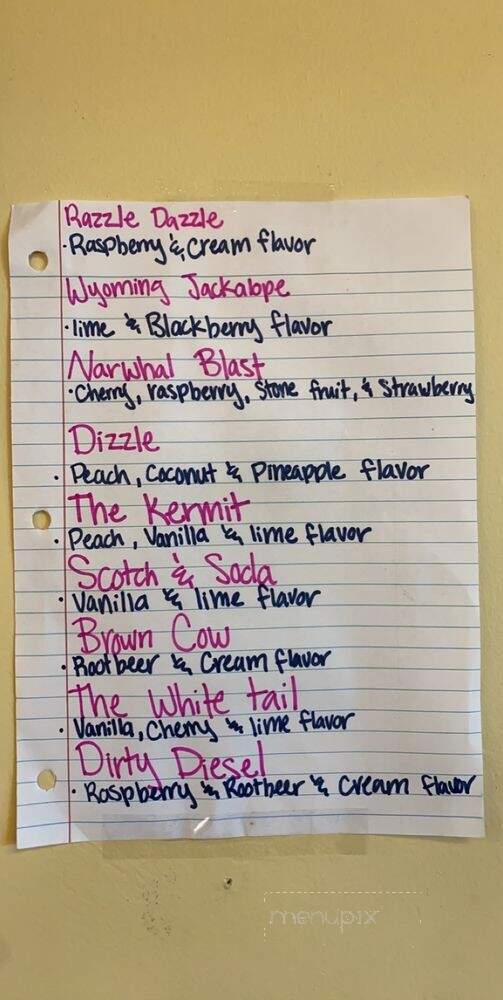 Razzle Dazzle
·Raspberry & Cream flavor
Wyoming Jackalope
·lime & Blackberry flavor
Narwhal Blast
·Cherry, raspberry, Stone fruit, & Strawberry
Dizzle
· Peach, Coconut & Pineapple flavor
The Kermit
· Peach, Vanilla & lime flavor
Scotch & Soda
· Vanilla & lime flavor
Brown Cow
· Rootbeer & Cream flavor
The White tail
· Vanilla, Cherry & lime flavor
Dirty Diesel
· Raspberry & Rootbeer & Cream flavor
menupix